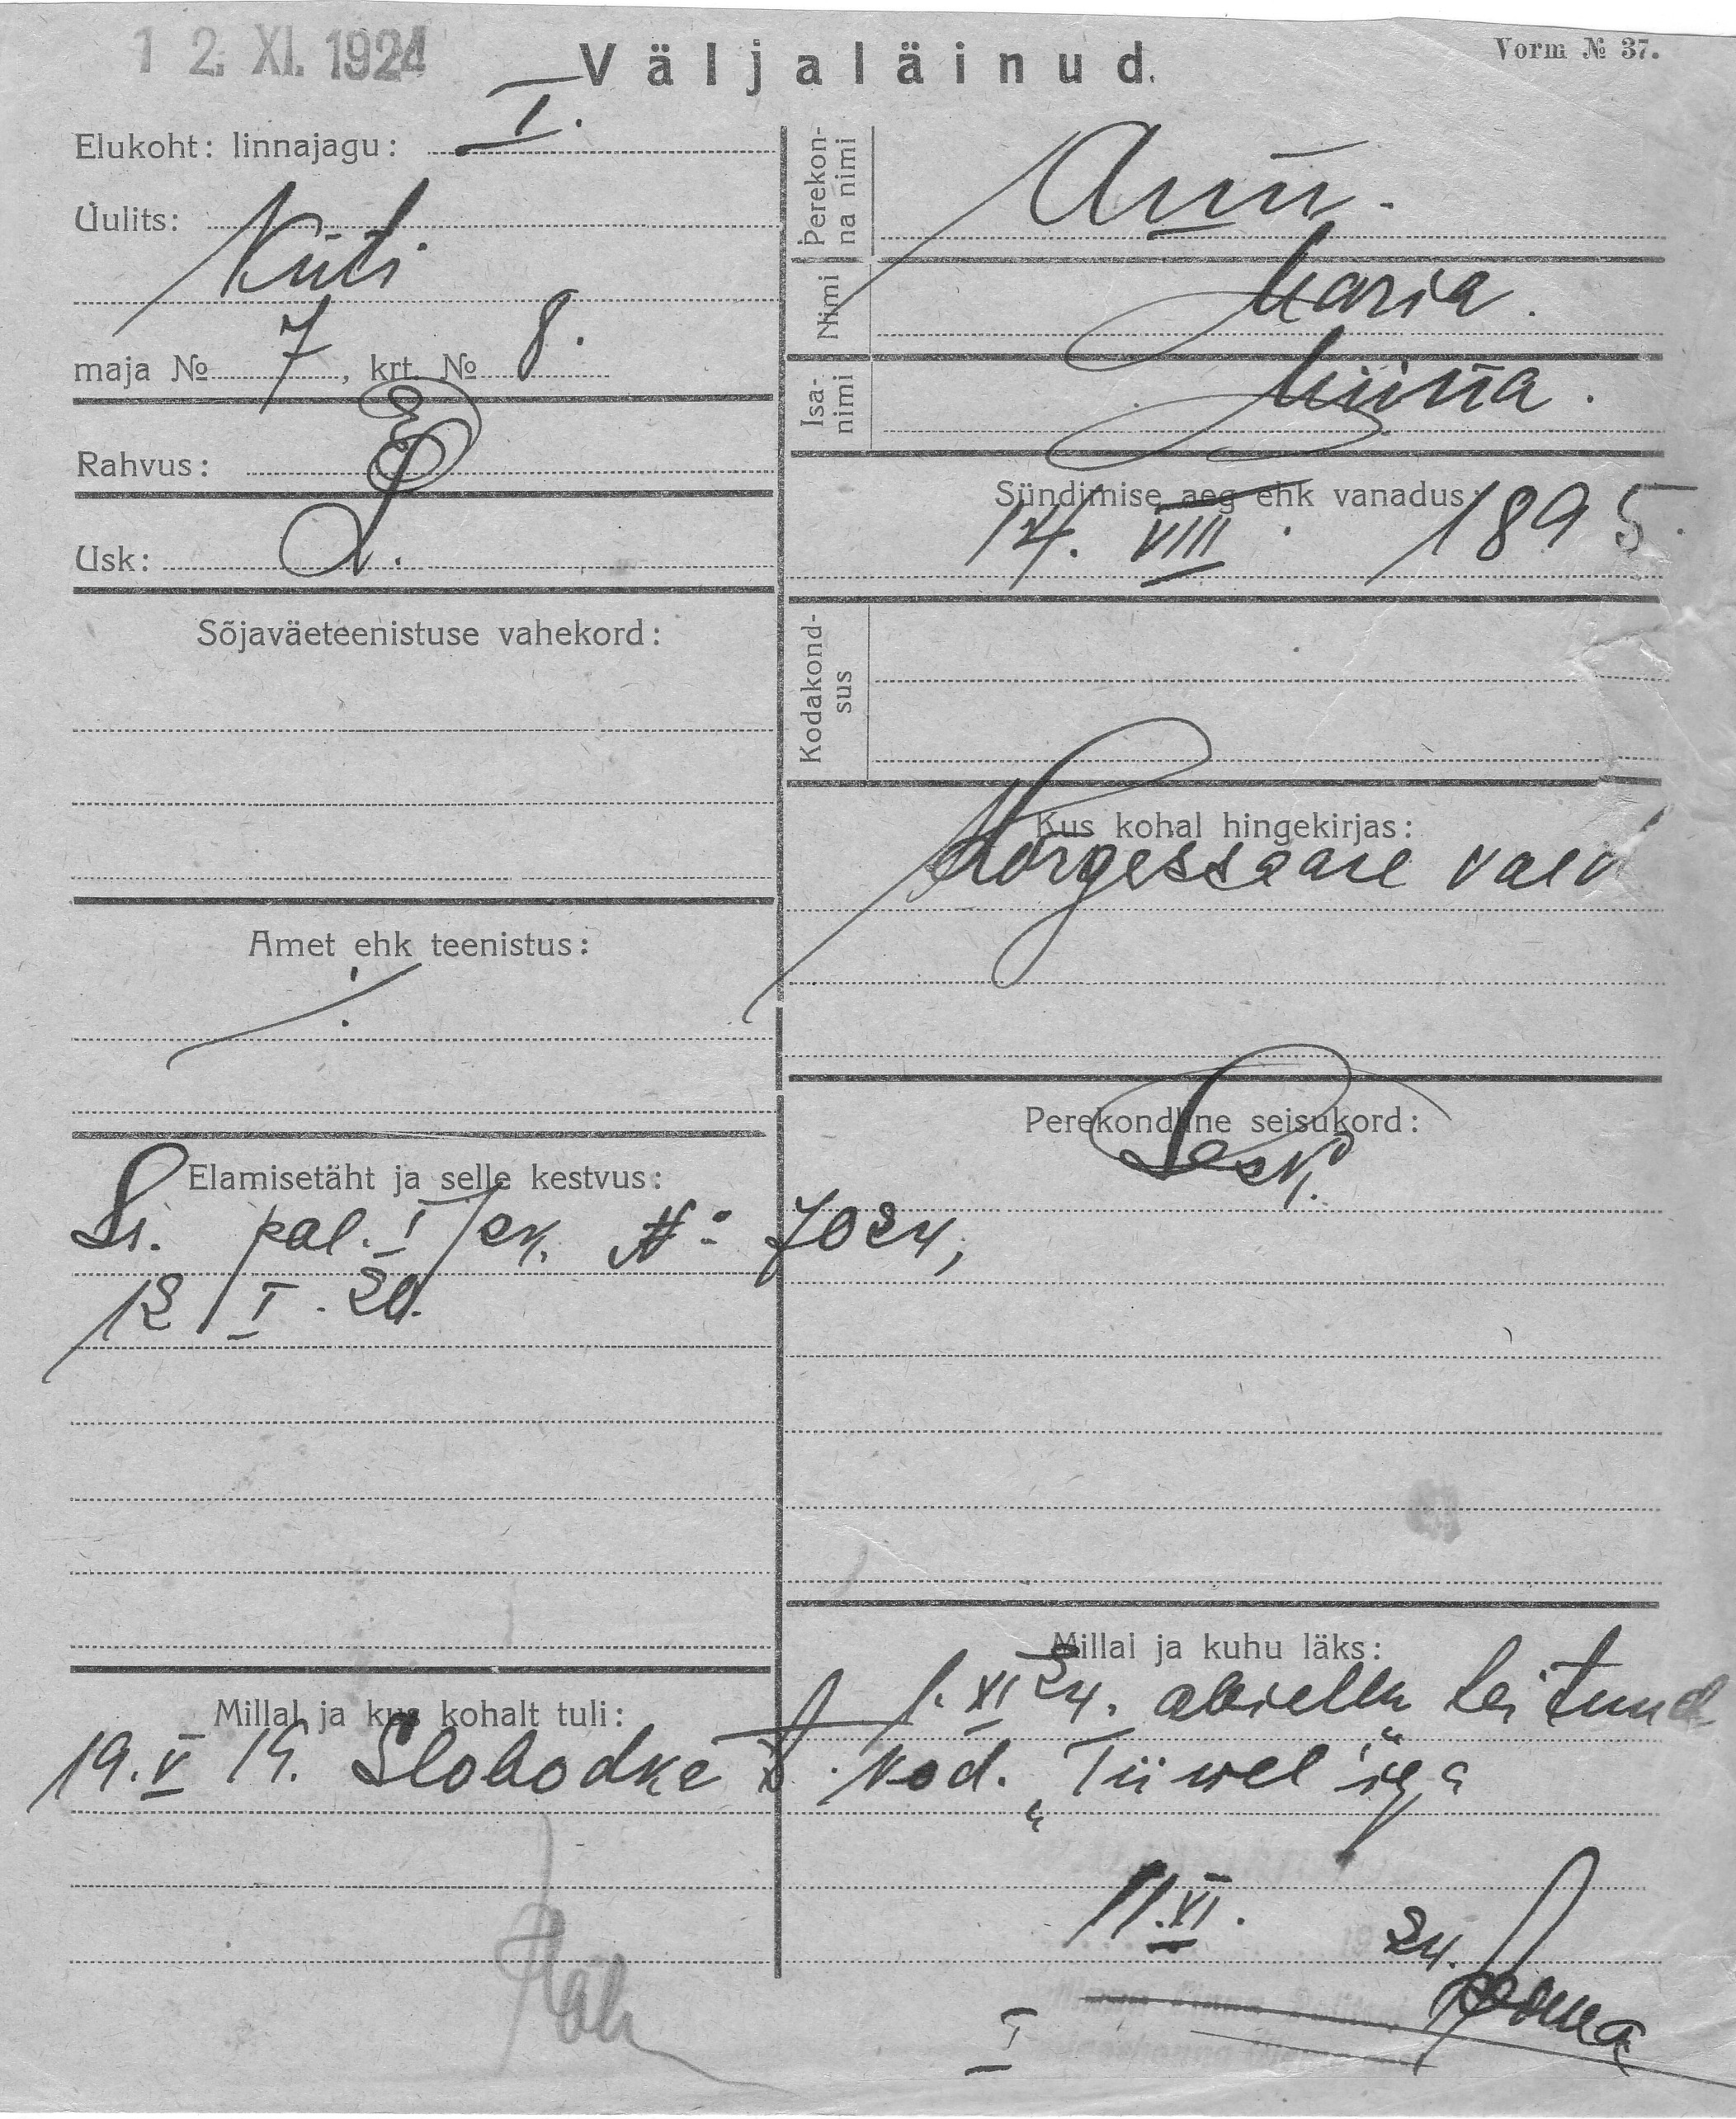 12. XI. 1924
Väljaläinud.
Vorm № 37.
Elukoht: linnajagu: I.
Uulits:
Küti
maja № 7, krt. № 8.
Rahvus: E
Usk: L.
Sõjaväeteenistuse vahekord:
Amet ehk teenistus:
Elamisetäht ja selle kestvus:
pal. I № 7024,
12/I. 20.
Millal ja kus kohalt tuli:
19. V 19. Slobodke
Perekonna nimi
Nimi Maria.
Isanimi Miina.
Sündimise aeg ehk vanadus:
14. VIII. 1895.
Kodakondsus
Kus kohal hingekirjas:
Kõrgessaare vald
Perekondline seisukord:
Lesk.
Millal ja kuhu läks:
1. XI 24. abiellu heitund
kod. „Tiiwel“iga
11. XI. 24.
I